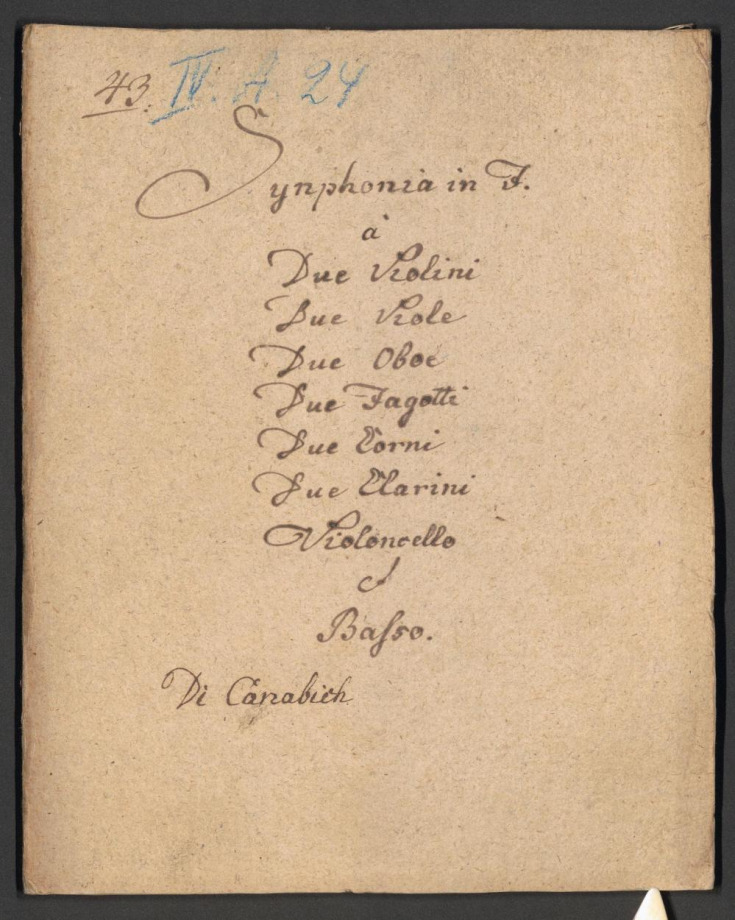 43. IV. A. 24
Synphonia in F.
à
Due Violini
Due Viole
Due Oboe
Due Fagotti
Due Corni
Due Clarini
Violoncello
e
Baſso.
Di Canabich